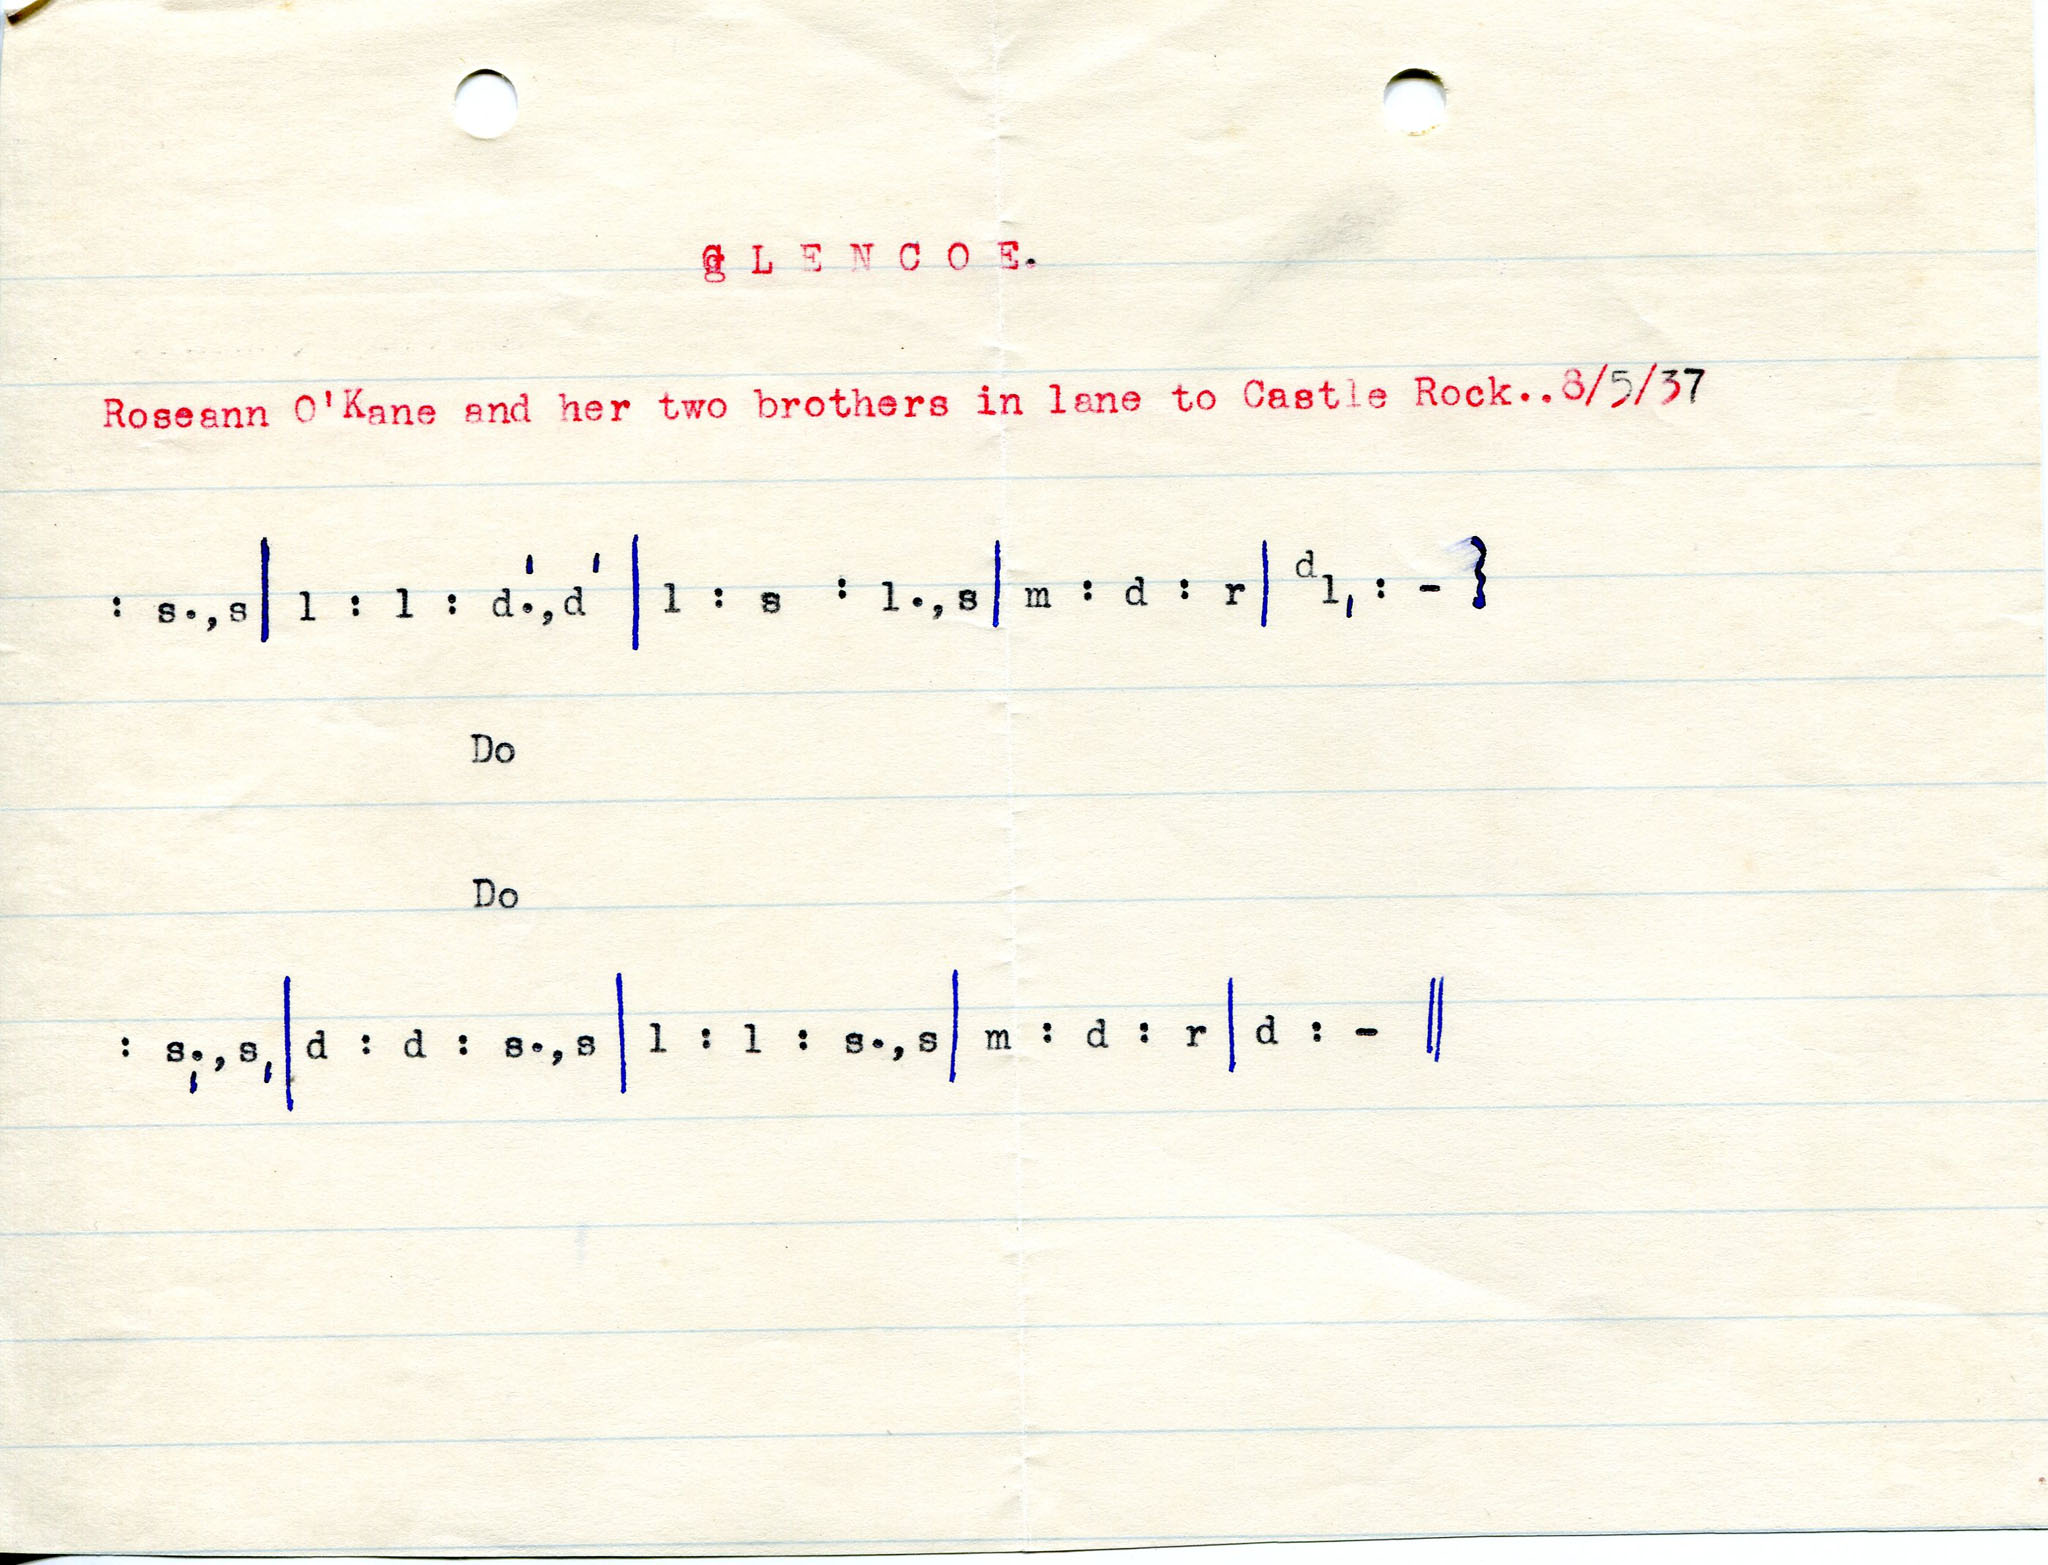 G L E N C O E.
Roseann O'Kane and her two brothers in lane to Castle Rock..8/5/37
: s.,s| l : l : d'.,d' | l : s : l.,s| m : d : r| ᵈl, : - }
Do
Do
: s,.,s,| d : d : s.,s| l : l : s.,s| m : d : r| d : - ||